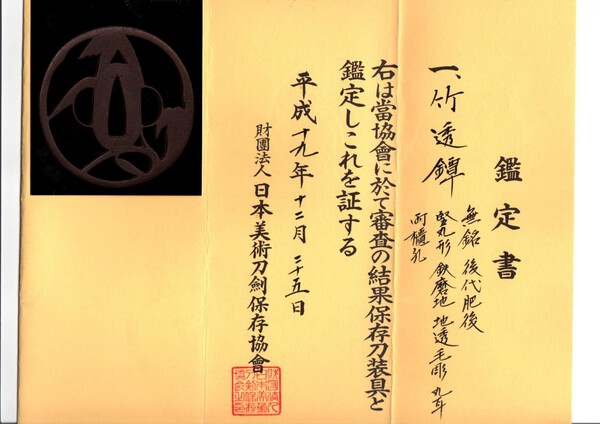 鑑定書
一、竹透鐔
無銘 後代肥後
竪丸形 鉄磨地 地透 毛彫 丸耳
両櫃孔
右は當協會に於て審査の結果保存刀装具と
鑑定しこれを証する
平成十九年十二月二十五日
財團法人 日本美術刀劍保存協會